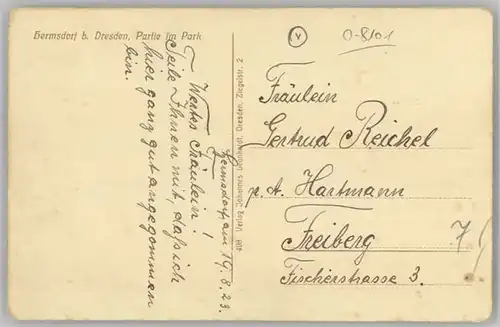 Hermsdorf b. Dresden, Partie im Park
O-8101
Hermsdorf, am 19.8.23.
Wertes Fräulein!
Teile Ihnen mit, daß ich
hier ganz gut angekommen
bin.
Fräulein
Gertrud Reichel
p. A. Hartmann
Freiberg
Fischerstrasse 3.
7